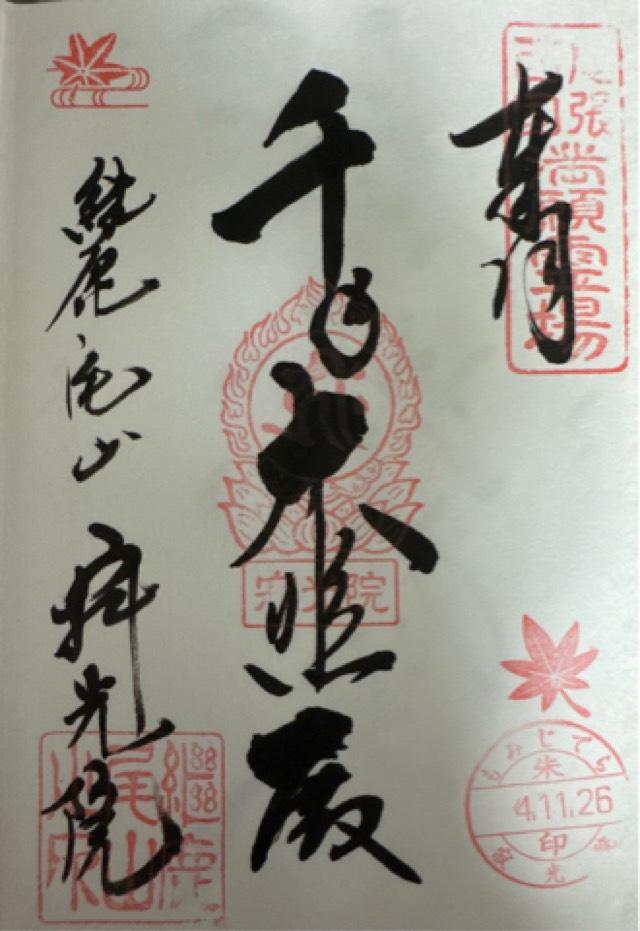 奉拝
尾張満願霊場
千手大悲殿
寂光院
継鹿尾山 寂光院
継鹿尾山
もみじでら
朱
4.11.26
印